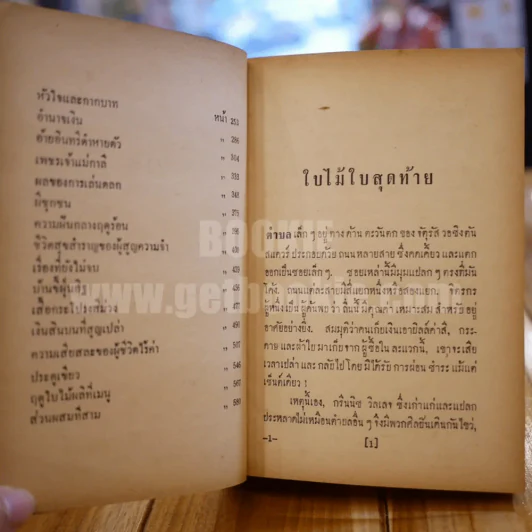 หัวใจและกากบาท
อำนาจเงิน หน้า 251
อ้ายอินทรีดำหายตัว " 266
เพชรเจ้าแม่กาลี " 304
ผลของการเล่นตลก " 333
ผีชุกชน " 348
ความฝันกลางฤดูร้อน " 378
ชีวิตสุขสำราญของผู้สูญความจำ "
เรื่องที่ยังไม่จบ "
"
เงินสินบนที่สูญเปล่า " 491
ความเสียสละของผู้ชีวิตไร้ค่า "
ประตูเขียว " 546
ฤดูใบไม้ผลิที่เมนู " 567
ส่วนผสมที่สาม " 580
ใบไม้ใบสุดท้าย
ตำบลเล็ก ๆ อยู่ทางด้านตะวันตก ของ จัตุรัส วอชิงตัน
สแควร์ ประกอบด้วย ถนนหลายสาย ซึ่งคดเคี้ยว และแตก
ออกเป็นซอยเล็ก ๆ ซอยเหล่านี้มีมุมแปลก ๆ ตรงที่มัน
โค้ง ถนนแต่ละสายมีที่แยกหนึ่งหรือสองแยก จิตรกร
ผู้หนึ่งเป็นผู้ค้นพบว่าถิ่นนี้มีคุณค่า เหมาะสม สำหรับอยู่
อาศัยอย่างยิ่ง สมมุติว่าคนเก็บเงินเอาบิลล์ค่าสี, กระ-
ดาษ และผ้าใบ มาเก็บจากผู้ซื้อใน ละแวกนี้, เขาจะเสีย
เวลาเปล่า และ กลับไป โดย มิได้รับ การผ่อน ชำระ แม้แต่
เซ็นต์เดียว !
เหตุนี้เอง, กรีนนิช วิลเลจ ซึ่งเก่าแก่และแปลก
ประหลาดไม่เหมือนตำบลอื่น ๆ จึงมีพวกศิลปินเดินกันไขว่,
-1- [1]
BOOKIE